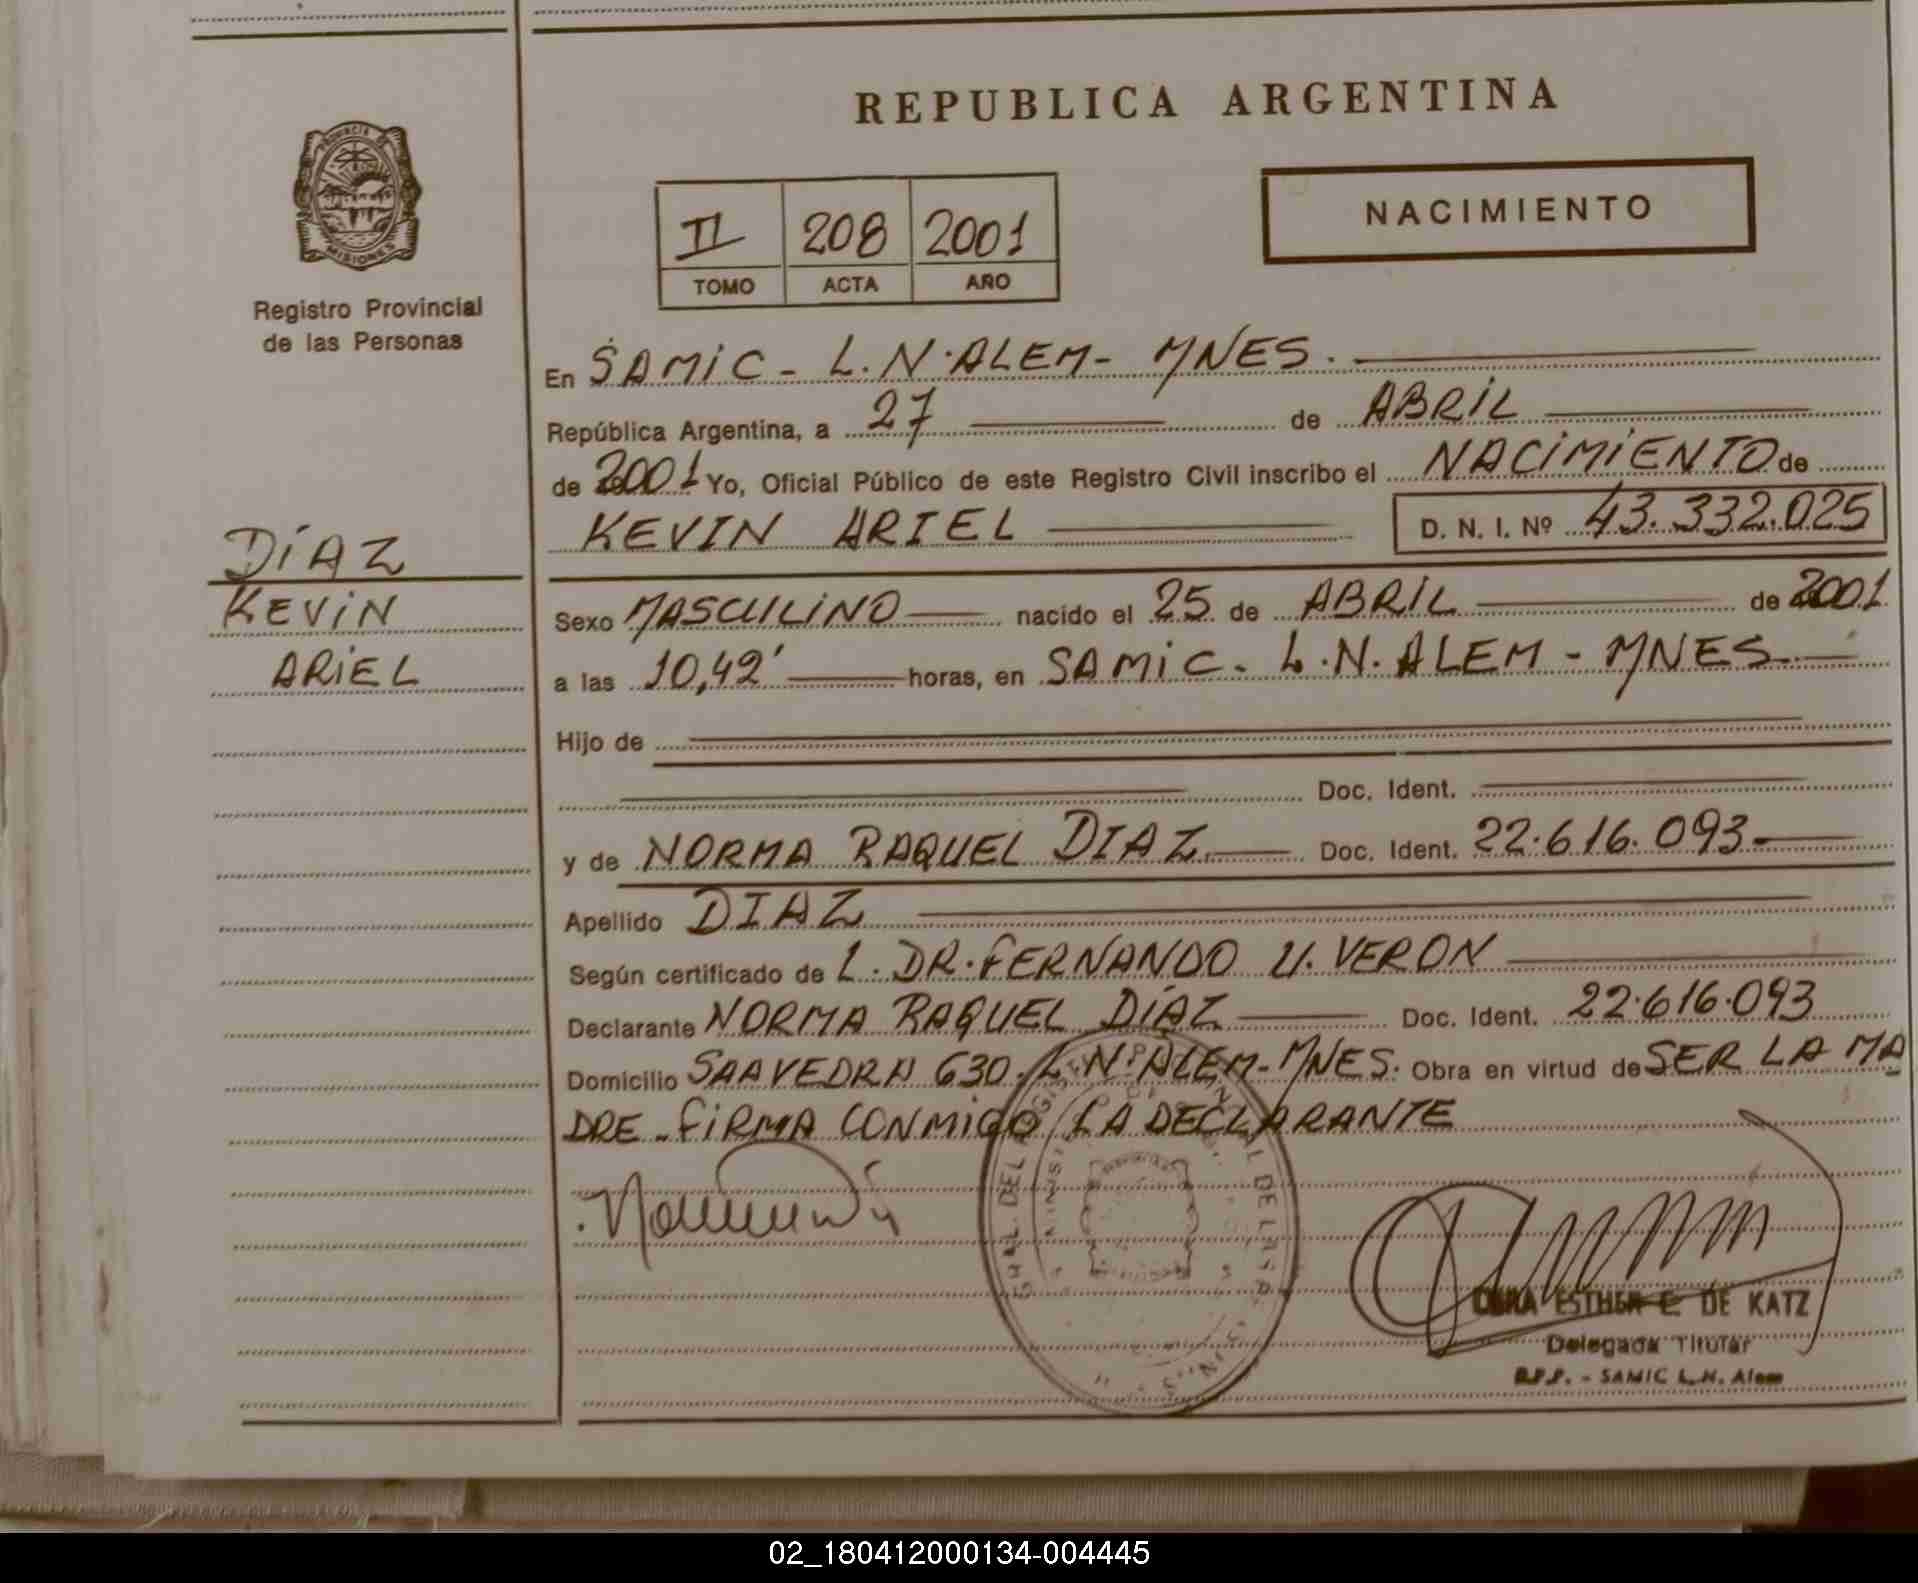 REPUBLICA ARGENTINA
PROVINCIA DE
MISIONES
Registro Provincial
de las Personas
II 208 2001
TOMO ACTA AÑO
NACIMIENTO
En SAMIC - L.N. ALEM - MNES.
República Argentina, a 27 de ABRIL
de 2001 Yo, Oficial Público de este Registro Civil inscribo el NACIMIENTO de
KEVIN ARIEL D. N. I. Nº 43.332.025
DÍAZ
KEVIN
ARIEL
Sexo MASCULINO nacido el 25 de ABRIL de 2001
a las 10,42' horas, en SAMIC - L.N. ALEM - MNES.
Hijo de
Doc. Ident.
y de NORMA RAQUEL DIAZ Doc. Ident. 22.616.093
Apellido DIAZ
Según certificado de L. DR. FERNANDO U. VERON
Declarante NORMA RAQUEL DÍAZ Doc. Ident. 22.616.093
Domicilio SAAVEDRA 630. L.N. ALEM - MNES. Obra en virtud de SER LA MA
DRE - FIRMA CONMIGO LA DECLARANTE
ESTHER E. DE KATZ
Delegada Titular
R.P.P. - SAMIC L.N. Alem
02_180412000134-004445